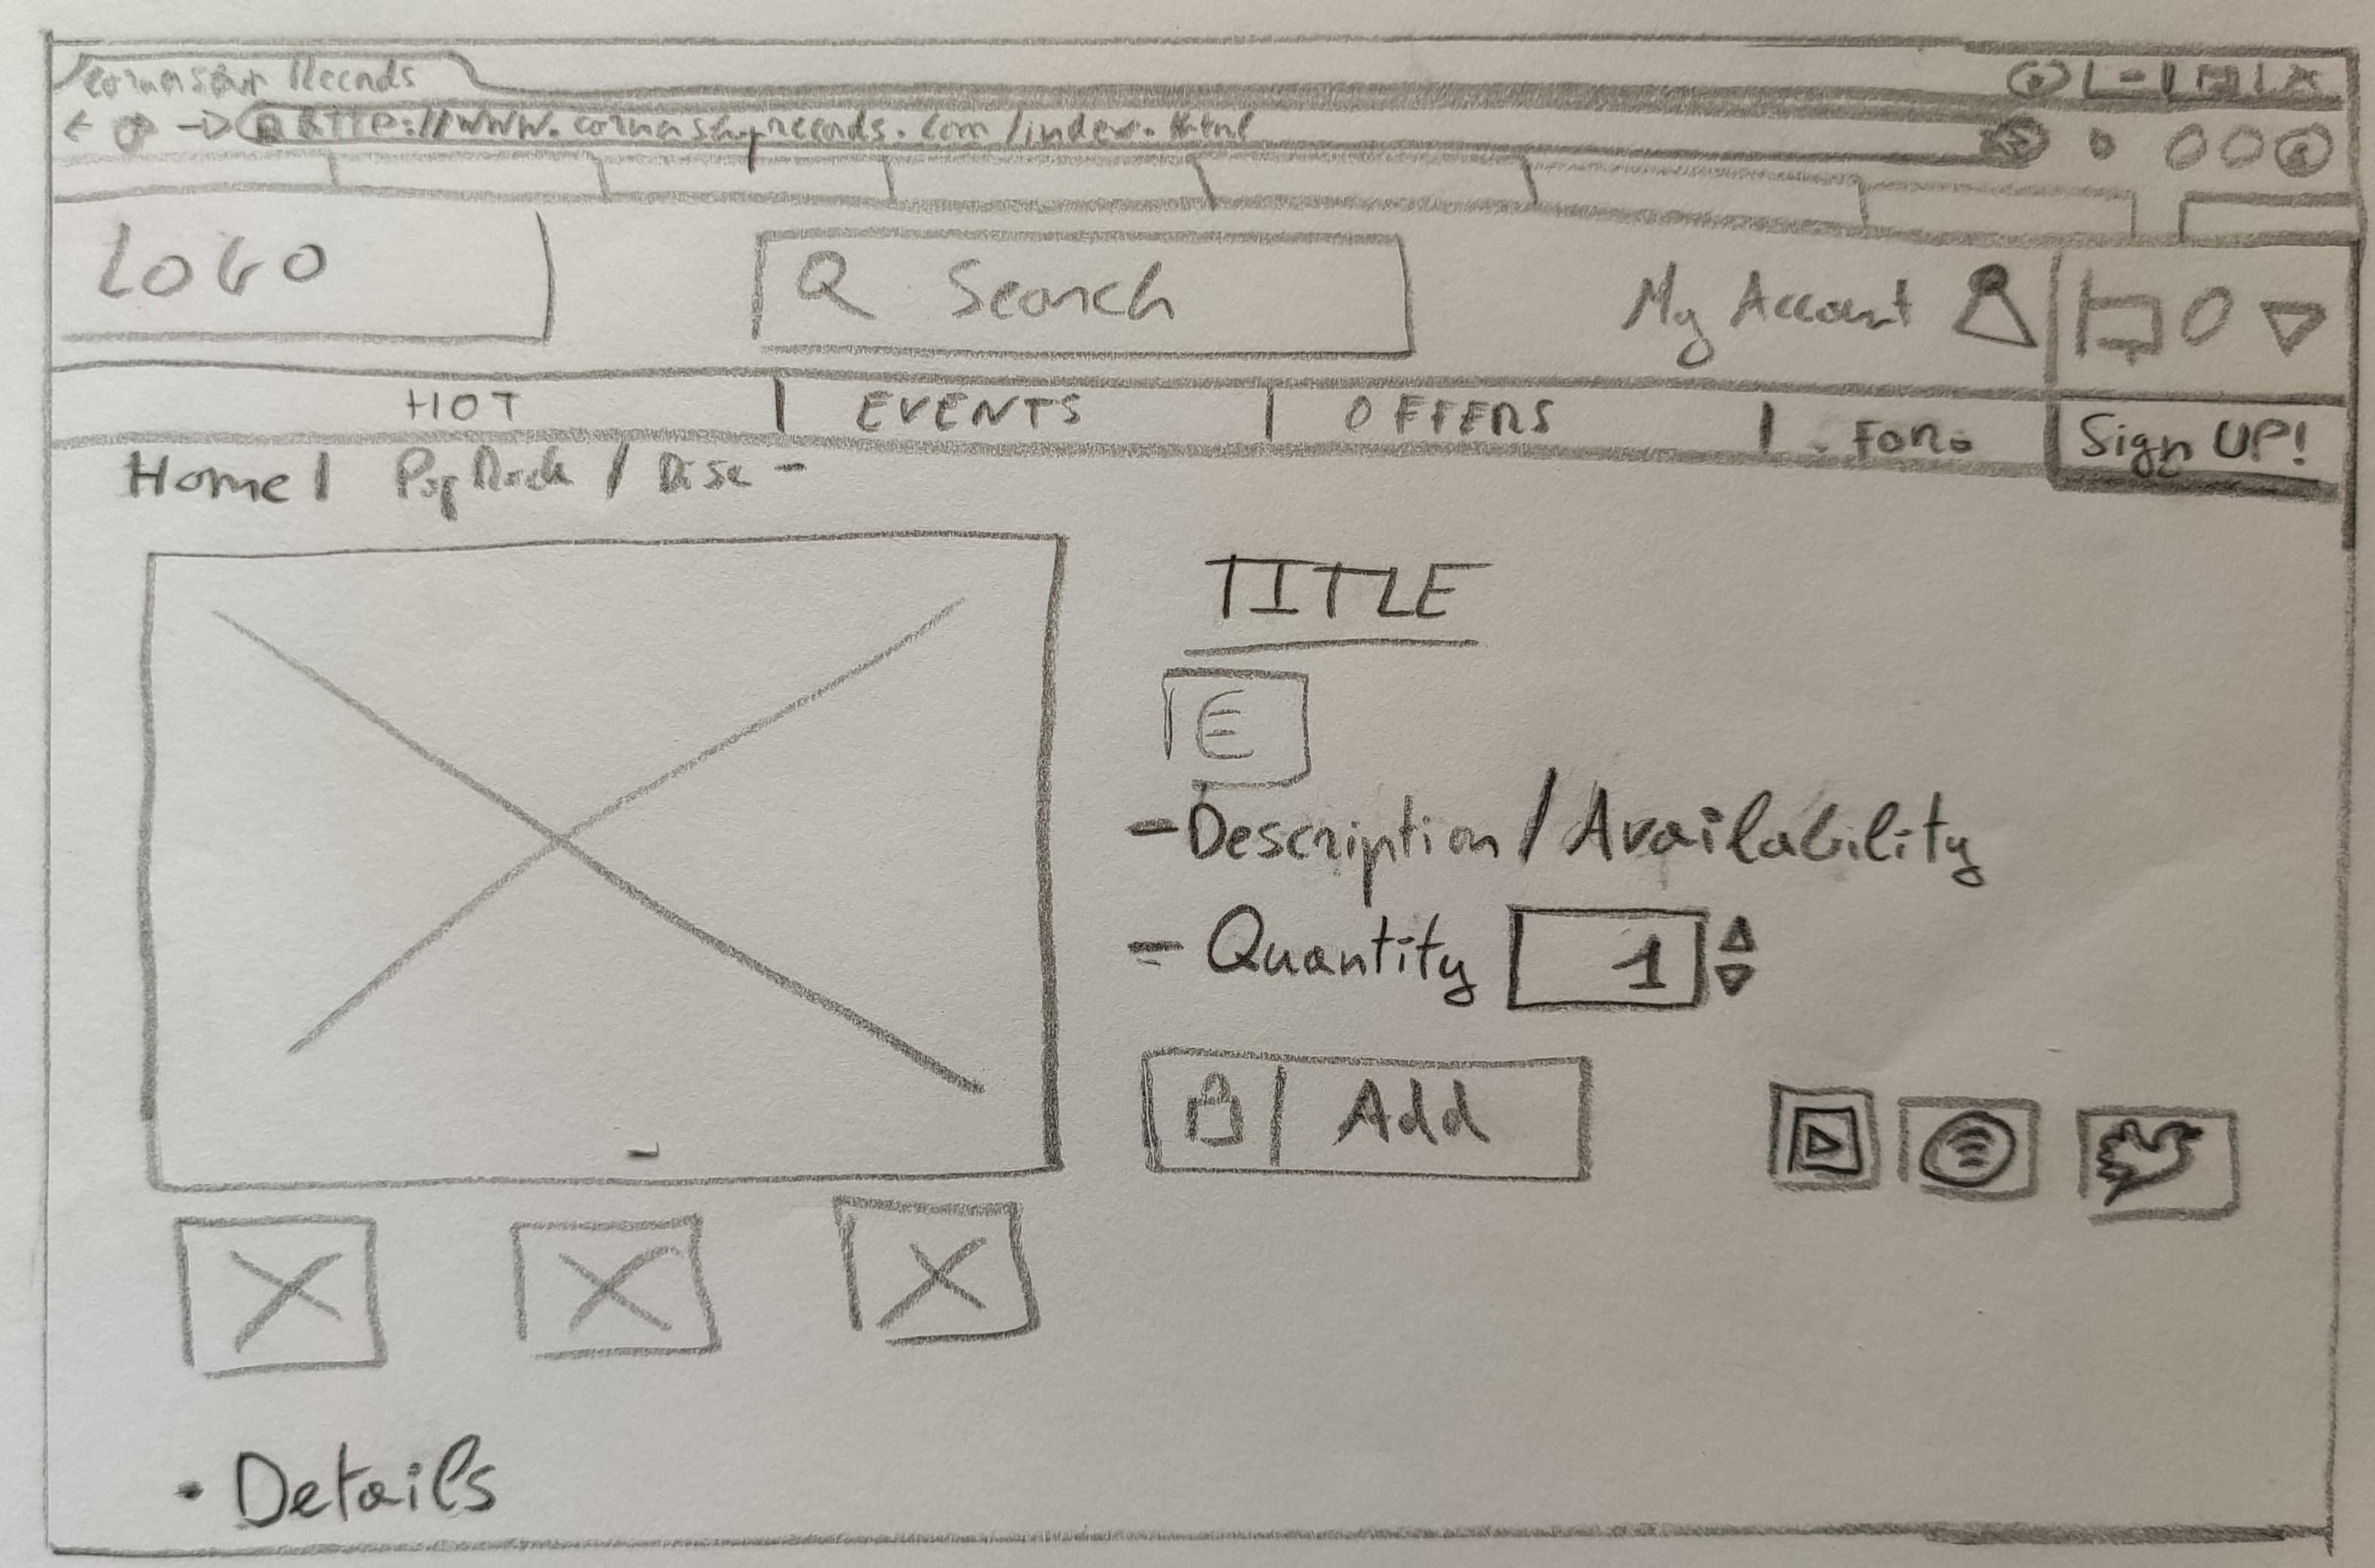 Cornershop Records
http://www.cornershoprecords.com/index.html
LOGO
Search
My Account
0
HOT | EVENTS | OFFERS | Foro
Sign UP!
Home | Pop Rock / Disc -
TITLE
€
- Description / Availability
- Quantity 1
Add
• Details